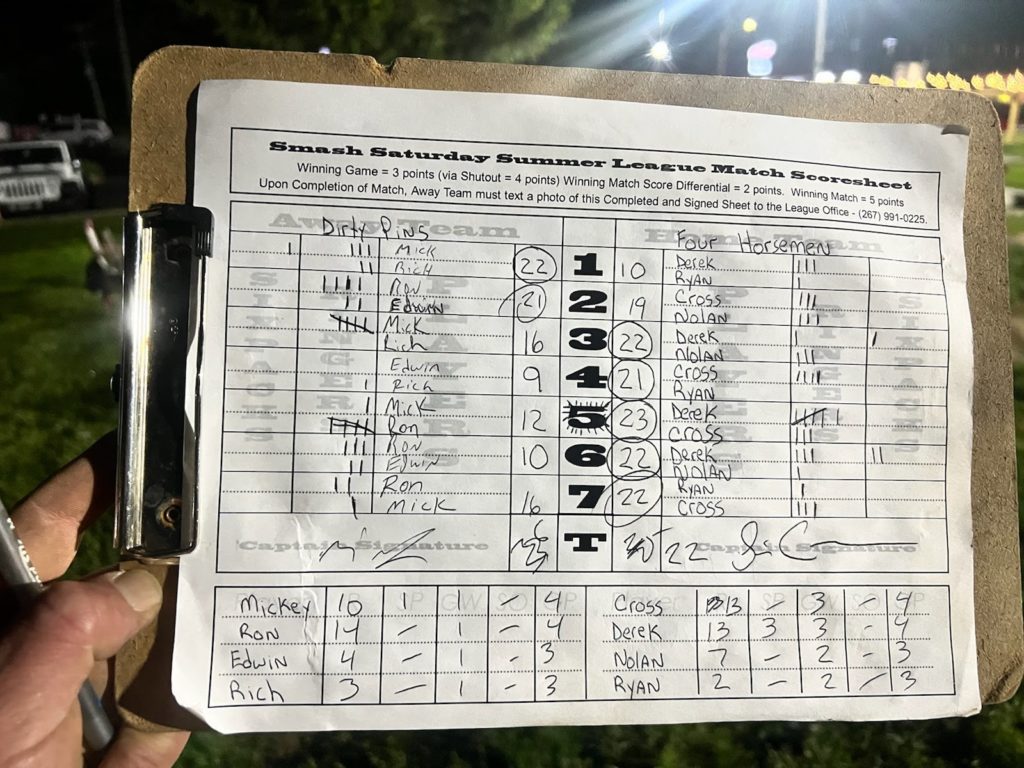 Smash Saturday Summer League Match Scoresheet
Winning Game = 3 points (via Shutout = 4 points) Winning Match Score Differential = 2 points. Winning Match = 5 points
Upon Completion of Match, Away Team must text a photo of this Completed and Signed Sheet to the League Office - (267) 991-0225.
Away Team Home Team
Dirty Pins Four Horsemen
Mick 22 1 10 Derek
Rich RYAN
Ron 21 2 19 Cross
Edwin NOLAN
Mick 16 3 22 Derek
Rich NOLAN
Edwin 9 4 21 Cross
Rich RYAN
Mick 12 5 23 Derek
Ron Cross
Ron 10 6 22 Derek
Edwin NOLAN
Ron 16 7 22 RYAN
Mick Cross
Captain Signature T 22 Captain Signature
Mickey 10 1 1 - 4 Cross 13 - 3 - 4
Ron 14 - 1 - 4 Derek 13 3 3 - 4
Edwin 4 - 1 - 3 NOLAN 7 - 2 - 3
Rich 3 - 1 - 3 RYAN 2 - 2 - 3